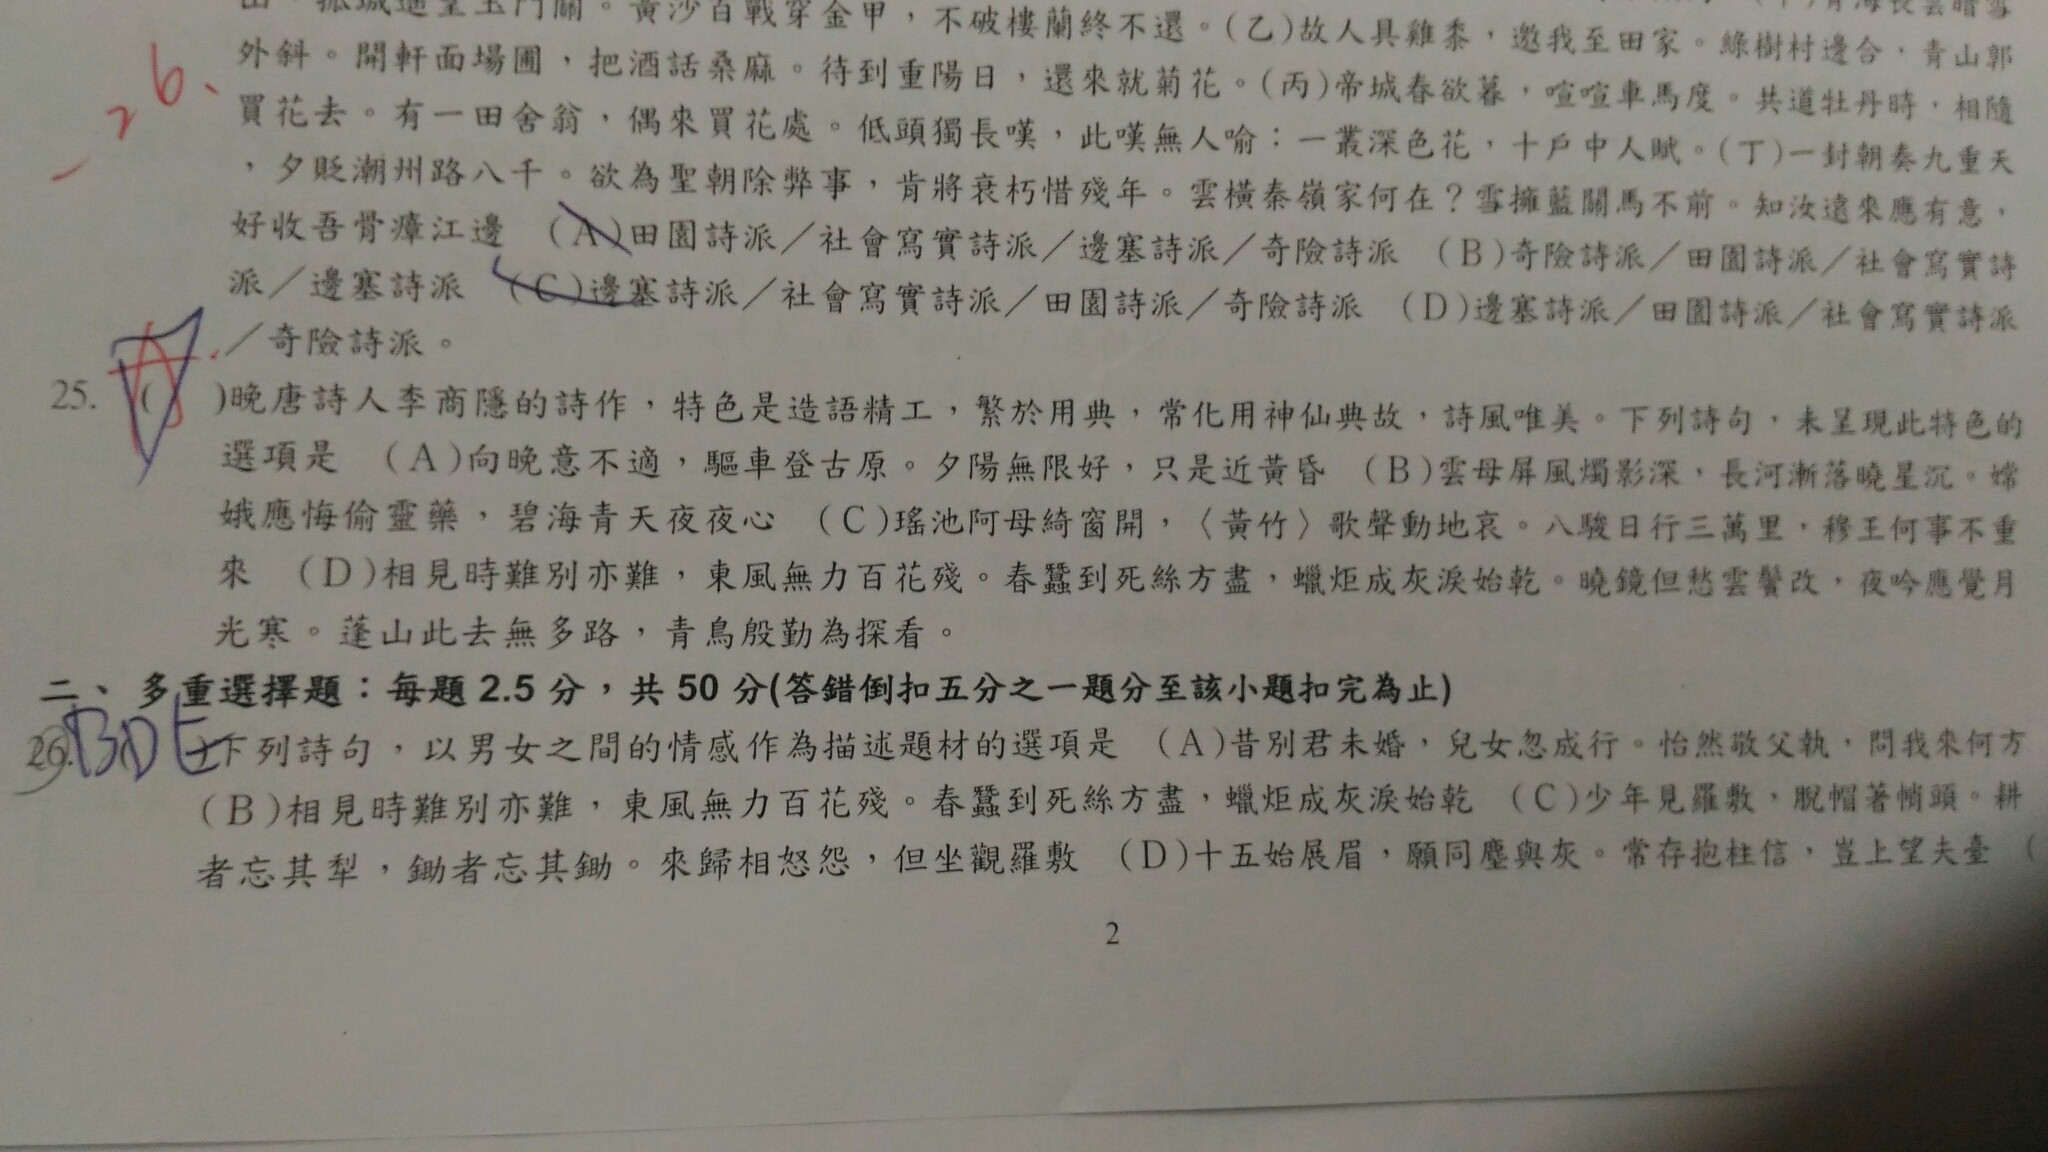 山，孤城遙望玉門關。黃沙百戰穿金甲，不破樓蘭終不還。(乙)故人具雞黍，邀我至田家。綠樹村邊合，青山郭
外斜。開軒面場圃，把酒話桑麻。待到重陽日，還來就菊花。(丙)帝城春欲暮，喧喧車馬度。共道牡丹時，相隨
買花去。有一田舍翁，偶來買花處。低頭獨長嘆，此嘆無人喻：一叢深色花，十戶中人賦。(丁)一封朝奏九重天
，夕貶潮州路八千。欲為聖朝除弊事，肯將衰朽惜殘年。雲橫秦嶺家何在？雪擁藍關馬不前。知汝遠來應有意，
好收吾骨瘴江邊 (A)田園詩派／社會寫實詩派／邊塞詩派／奇險詩派 (B)奇險詩派／田園詩派／社會寫實詩
派／邊塞詩派 (C)邊塞詩派／社會寫實詩派／田園詩派／奇險詩派 (D)邊塞詩派／田園詩派／社會寫實詩派
／奇險詩派。
-26.
A
25. ( )晚唐詩人李商隱的詩作，特色是造語精工，繁於用典，常化用神仙典故，詩風唯美。下列詩句，未呈現此特色的
選項是 (A)向晚意不適，驅車登古原。夕陽無限好，只是近黃昏 (B)雲母屏風燭影深，長河漸落曉星沉。嫦
娥應悔偷靈藥，碧海青天夜夜心 (C)瑤池阿母綺窗開，〈黃竹〉歌聲動地哀。八駿日行三萬里，穆王何事不重
來 (D)相見時難別亦難，東風無力百花殘。春蠶到死絲方盡，蠟炬成灰淚始乾。曉鏡但愁雲鬢改，夜吟應覺月
光寒。蓬山此去無多路，青鳥殷勤為探看。
二、多重選擇題：每題 2.5 分，共 50 分(答錯倒扣五分之一題分至該小題扣完為止)
26. BDE )下列詩句，以男女之間的情感作為描述題材的選項是 (A)昔別君未婚，兒女忽成行。怡然敬父執，問我來何方
(B)相見時難別亦難，東風無力百花殘。春蠶到死絲方盡，蠟炬成灰淚始乾 (C)少年見羅敷，脫帽著帩頭。耕
者忘其犁，鋤者忘其鋤。來歸相怒怨，但坐觀羅敷 (D)十五始展眉，願同塵與灰。常存抱柱信，豈上望夫臺 (
2